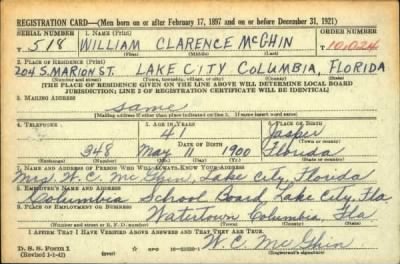 REGISTRATION CARD—(Men born on or after February 17, 1897 and on or before December 31, 1921)
SERIAL NUMBER 1. NAME (Print) ORDER NUMBER
T 518 WILLIAM CLARENCE McGHIN T 10,024
(First) (Middle) (Last)
2. PLACE OF RESIDENCE (Print)
204 S. MARION ST. LAKE CITY COLUMBIA, FLORIDA
(Number and street) (Town, township, village, or city) (County) (State)
[THE PLACE OF RESIDENCE GIVEN ON THE LINE ABOVE WILL DETERMINE LOCAL BOARD
JURISDICTION; LINE 2 OF REGISTRATION CERTIFICATE WILL BE IDENTICAL]
3. MAILING ADDRESS
Same
[Mailing address if other than place indicated on line 2. If same insert word same]
4. TELEPHONE 5. AGE IN YEARS 6. PLACE OF BIRTH
41 Jasper
DATE OF BIRTH (Town or county)
348 May 11 1900 Florida
(Exchange) (Number) (Mo.) (Day) (Yr.) (State or country)
7. NAME AND ADDRESS OF PERSON WHO WILL ALWAYS KNOW YOUR ADDRESS
Mrs. W. C. McGhin, Lake City, Florida
8. EMPLOYER'S NAME AND ADDRESS
Columbia School Board, Lake City, Fla
9. PLACE OF EMPLOYMENT OR BUSINESS
Watertown Columbia, Fla
(Number and street or R. F. D. number) (Town) (County) (State)
I AFFIRM THAT I HAVE VERIFIED ABOVE ANSWERS AND THAT THEY ARE TRUE.
W. C. McGhin
D. S. S. Form 1
(Revised 1-1-42) (over) GPO (Registrant's signature)